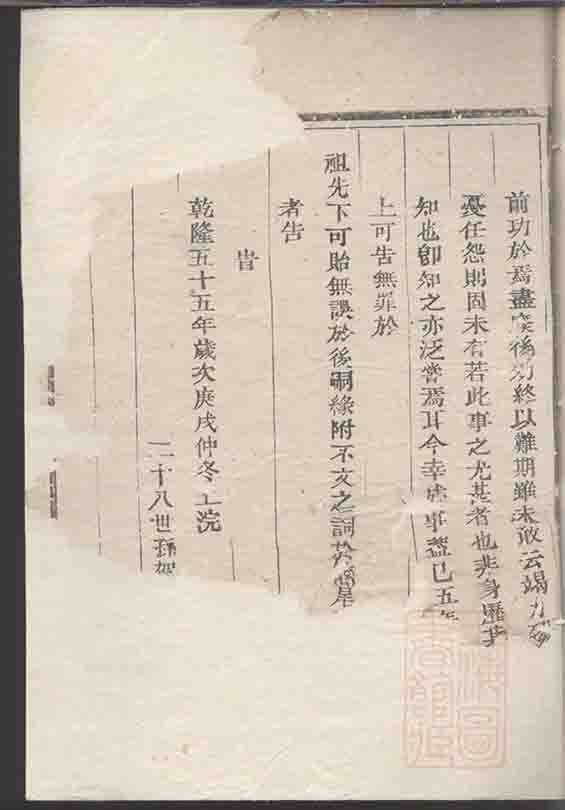 前功於焉盡後終以難期雖未敢云竭力
憂任怨則固未有若此事之尤甚者也非身歷其
知也卽知之亦泛常焉耳今幸事蓋已五年
上可告無罪於
祖先下可貽無誤於後嗣緣附不文之詞於譜尾
者告
旹
乾隆五十五年歲次庚戌仲冬上浣
二十八世孫
圖書館